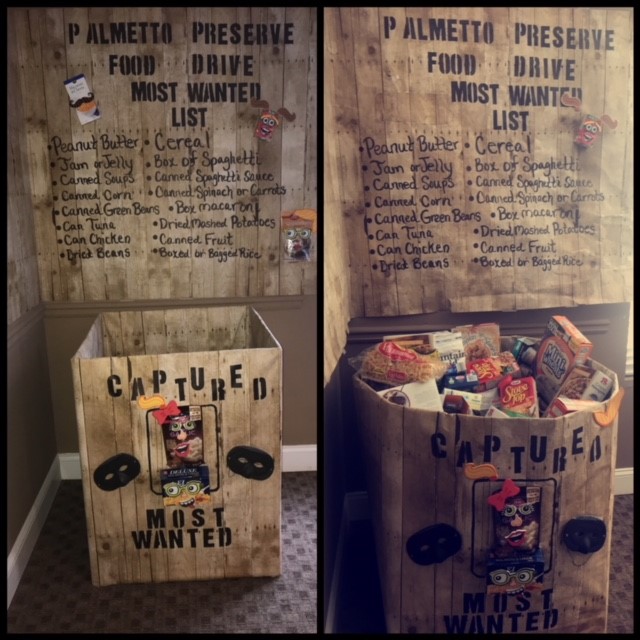 PALMETTO PRESERVE
FOOD DRIVE
MOST WANTED
LIST
• Peanut Butter • Cereal
• Jam or Jelly • Box of Spaghetti
• Canned Soups • Canned Spaghetti Sauce
• Canned Corn • Canned Spinach or Carrots
• Canned Green Beans • Box macaroni
• Can Tuna • Dried Mashed Potatoes
• Can Chicken • Canned Fruit
• Dried Beans • Boxed or Bagged Rice
CAPTURED
DELUXE
MOST
WANTED
PALMETTO PRESERVE
FOOD DRIVE
MOST WANTED
LIST
• Peanut Butter • Cereal
• Jam or Jelly • Box of Spaghetti
• Canned Soups • Canned Spaghetti Sauce
• Canned Corn • Canned Spinach or Carrots
• Canned Green Beans • Box macaroni
• Can Tuna • Dried Mashed Potatoes
• Can Chicken • Canned Fruit
• Dried Beans • Boxed or Bagged Rice
Stove
Top
CAPTURED
MOST
WANTED